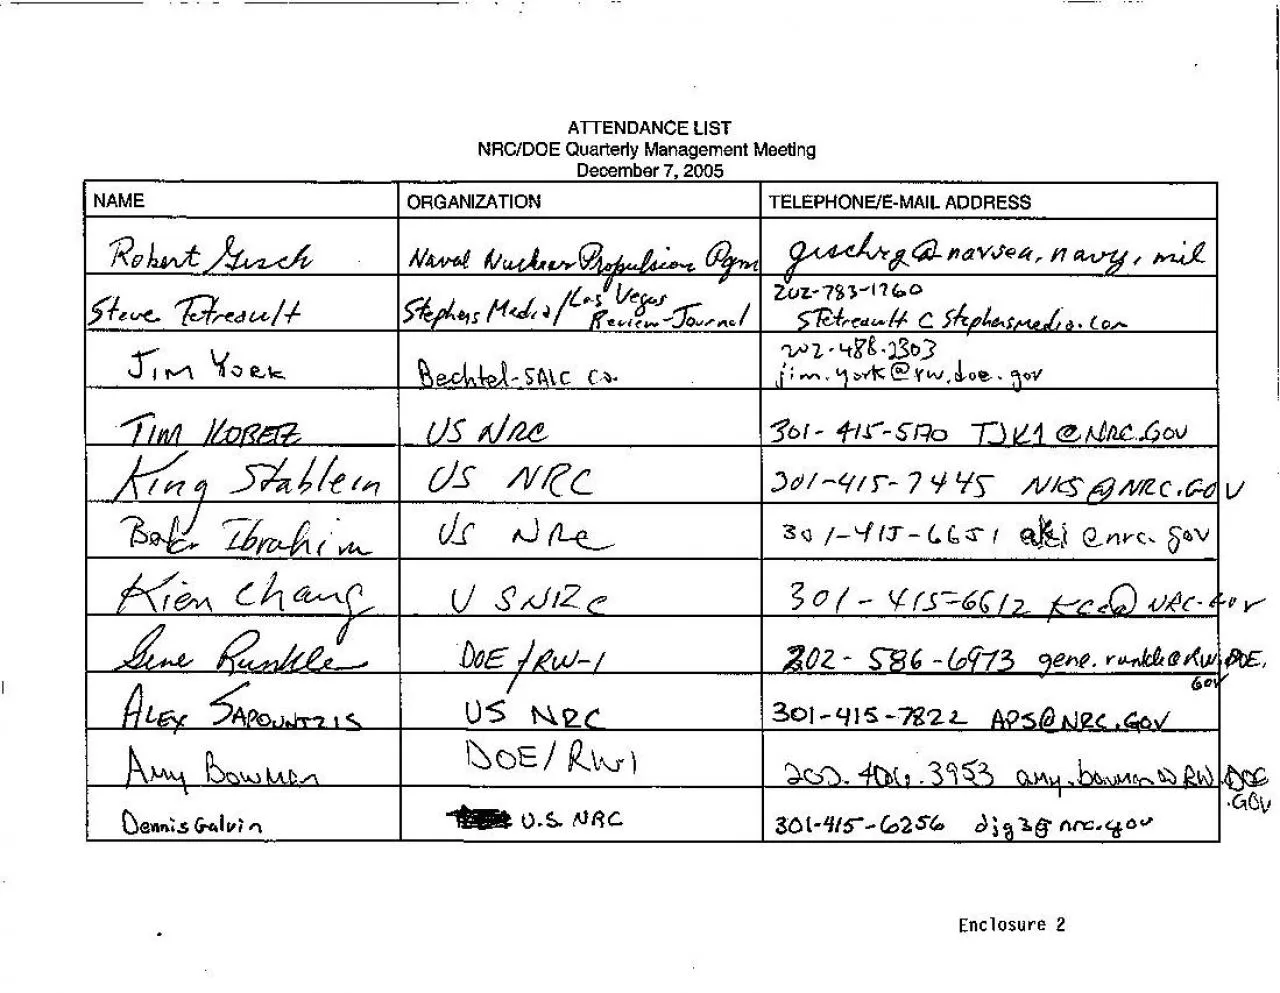 ATTENDANCE LIST
NRC/DOE Quarterly Management Meeting
December 7, 2005
NAME ORGANIZATION TELEPHONE/E-MAIL ADDRESS
Robert Gisch Naval Nuclear Propulsion Pgm gischrg@navsea.navy.mil
Steve Tetreault Stephens Media/Las Vegas Review-Journal 202-783-1760
STetreault @ Stephensmedia.com
Jim York Bechtel-SAIC Co. 202-488-2303
jim.york@rw.doe.gov
TIM KOBETZ US NRC 301-415-5170 TJK1@NRC.GOV
King Stablein US NRC 301-415-7445 NKS@NRC.GOV
Ibrahim US NRC 301-415-6651 @nrc.gov
Kien Chang USNRC 301-415-6612 KCC@NRC.Gov
Gene Runkle DOE/RW-1 202-586-6973 gene.runkle@RW.DOE.
GOV
ALEX SAPOUNTZIS US NRC 301-415-7822 APS@NRC.GOV
Amy Bowman DOE/RW1 amy.bowman@RW.DOE
.GOV
Dennis Galvin U.S. NRC 301-415-6256 djg3@nrc.gov
Enclosure 2